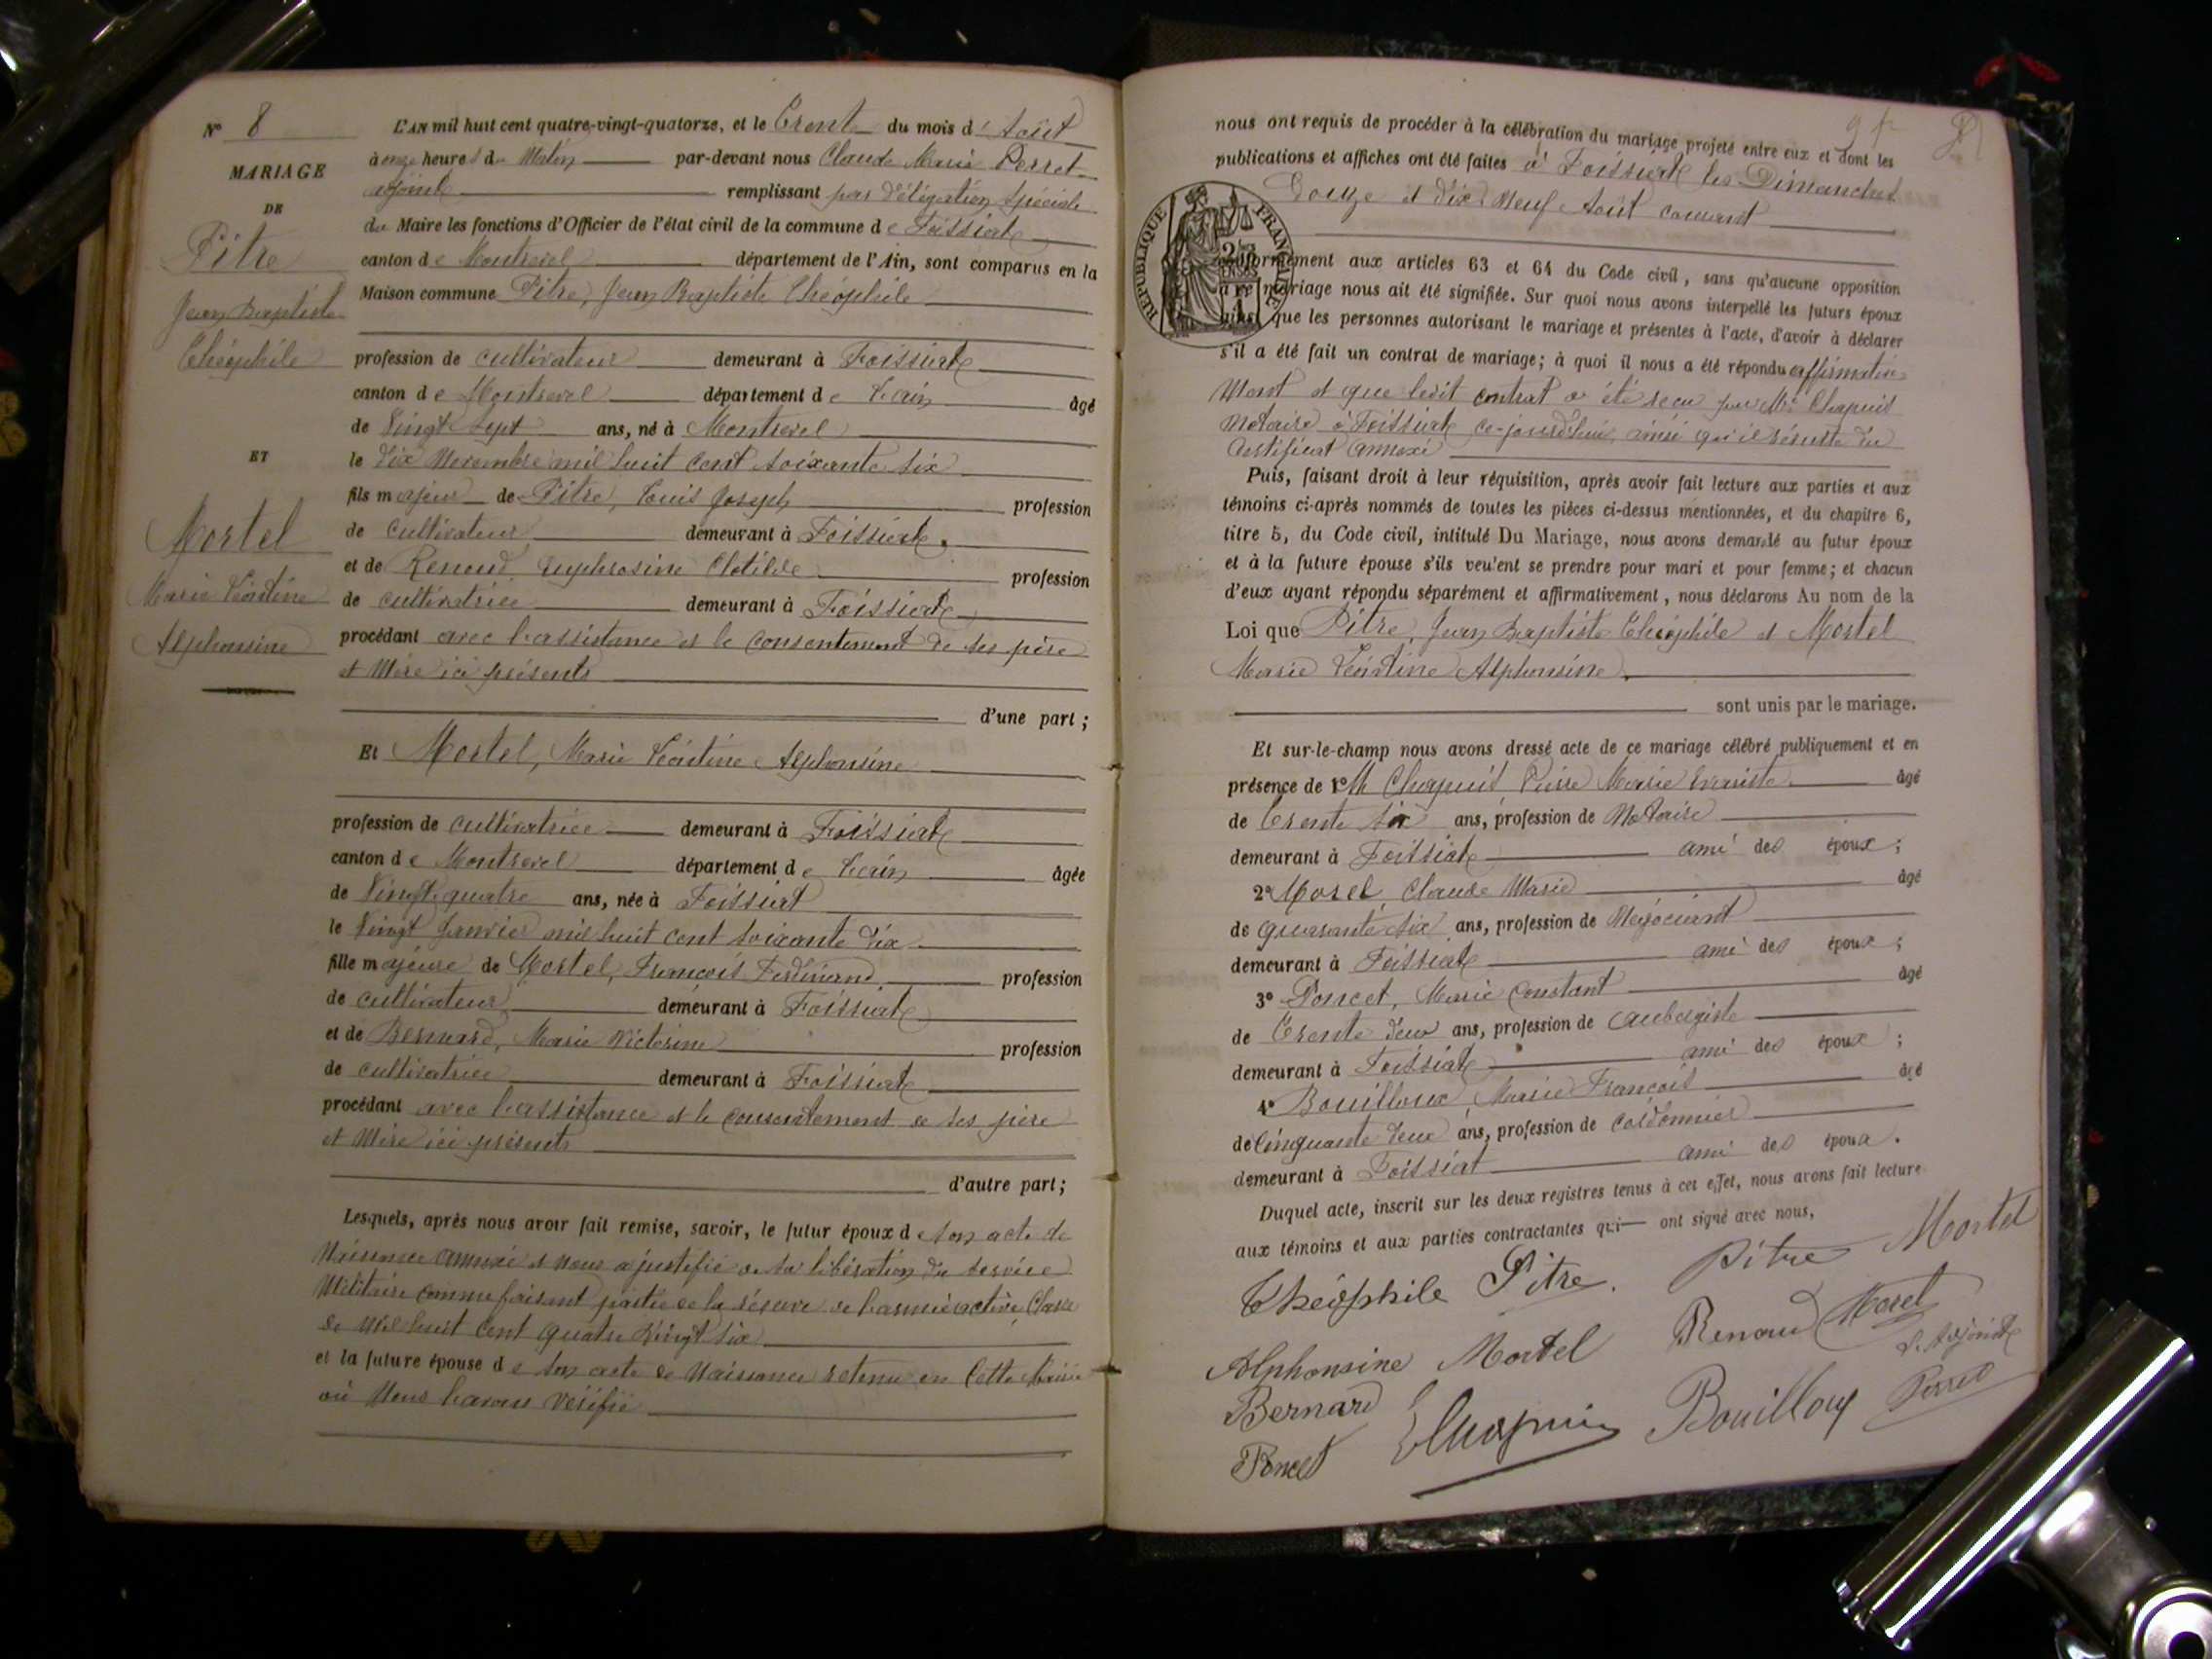 N° 8
MARIAGE
DE
Pitre
Jean Baptiste
Théophile
ET
Mortel
Marie Léontine
Alphonsine
L'AN mil huit cent quatre-vingt-quatorze, et le Trente du mois d'Août
à onze heures du Matin par-devant nous Claude Marie Perret
adjoint remplissant par délégation spéciale
du Maire les fonctions d'Officier de l'état civil de la commune de Foissiat
canton de Montrevel département de l'Ain, sont comparus en la
Maison commune Pitre, Jean Baptiste Théophile
profession de cultivateur demeurant à Foissiat
canton de Montrevel département de l'ain âgé
de Vingt Sept ans, né à Montrevel
le dix Novembre mil huit cent soixante six
fils majeur de Pitre, Louis Joseph profession
de cultivateur demeurant à Foissiat
et de Renoud Euphrosine Clotilde profession
de cultivatrice demeurant à Foissiat
procédant avec l'assistance et le consentement de ses père
et Mère ici présents
d'une part ;
Et Mortel, Marie Léontine Alphonsine
profession de cultivatrice demeurant à Foissiat
canton de Montrevel département de l'ain âgée
de Vingt quatre ans, née à Foissiat
le Vingt Janvier mil huit cent soixante dix
fille majeure de Mortel, François Ferdinand profession
de cultivateur demeurant à Foissiat
et de Bernard, Marie Victorine profession
de cultivatrice demeurant à Foissiat
procédant avec l'assistance et le consentement de ses père
et Mère ici présents
d'autre part ;
Lesquels, après nous avoir fait remise, savoir, le futur époux de son acte de
Naissance annexé et nous a justifié de sa libération du service
Militaire comme faisant partie de la réserve de l'armée active, Classe
de mil huit cent quatre Vingt six
et la future épouse de son acte de Naissance retenu en cette Mairie
où Nous l'avons vérifié
nous ont requis de procéder à la célébration du mariage projeté entre eux et dont les
publications et affiches ont été faites à Foissiat les Dimanches
Douze et dix Neuf Août courant
REPUBLIQUE FRANÇAISE
conformément aux articles 63 et 64 du Code civil, sans qu'aucune opposition
à ce mariage nous ait été signifiée. Sur quoi nous avons interpellé les futurs époux
ainsi que les personnes autorisant le mariage et présentes à l'acte, d'avoir à déclarer
s'il a été fait un contrat de mariage ; à quoi il nous a été répondu affirmative-
Ment et que ledit contrat a été recu par Me Chapuis
Notaire à Foissiat ce-jourd'hui, ainsi qu'il résulte du
Certificat annexé
Puis, faisant droit à leur réquisition, après avoir fait lecture aux parties et aux
témoins ci-après nommés de toutes les pièces ci-dessus mentionnées, et du chapitre 6,
titre 5, du Code civil, intitulé Du Mariage, nous avons demandé au futur époux
et à la future épouse s'ils veulent se prendre pour mari et pour femme ; et chacun
d'eux ayant répondu séparément et affirmativement, nous déclarons Au nom de la
Loi que Pitre, Jean Baptiste Théophile et Mortel
Marie Léontine Alphonsine
sont unis par le mariage.
Et sur-le-champ nous avons dressé acte de ce mariage célébré publiquement et en
présence de 1° M Chapuis Pierre Marie Evariste âgé
de Trente six ans, profession de Notaire
demeurant à Foissiat ami des époux ;
2° Morel, Claude Marie âgé
de quarante six ans, profession de Négociant
demeurant à Foissiat ami des époux ;
3° Poncet, Marie Constant âgé
de Trente deux ans, profession de aubergiste
demeurant à Foissiat ami des époux ;
4° Bouilloux Marie François âgé
de Cinquante deux ans, profession de cordonnier
demeurant à Foissiat ami des époux.
Duquel acte, inscrit sur les deux registres tenus à cet effet, nous avons fait lecture
aux témoins et aux parties contractantes qui ont signé avec nous,
Théophile Pitre. Pitre Mortel
Alphonsine Mortel Renoud Morel
Bernard Chapuis Bouilloux L'adjoint
Poncet Perret